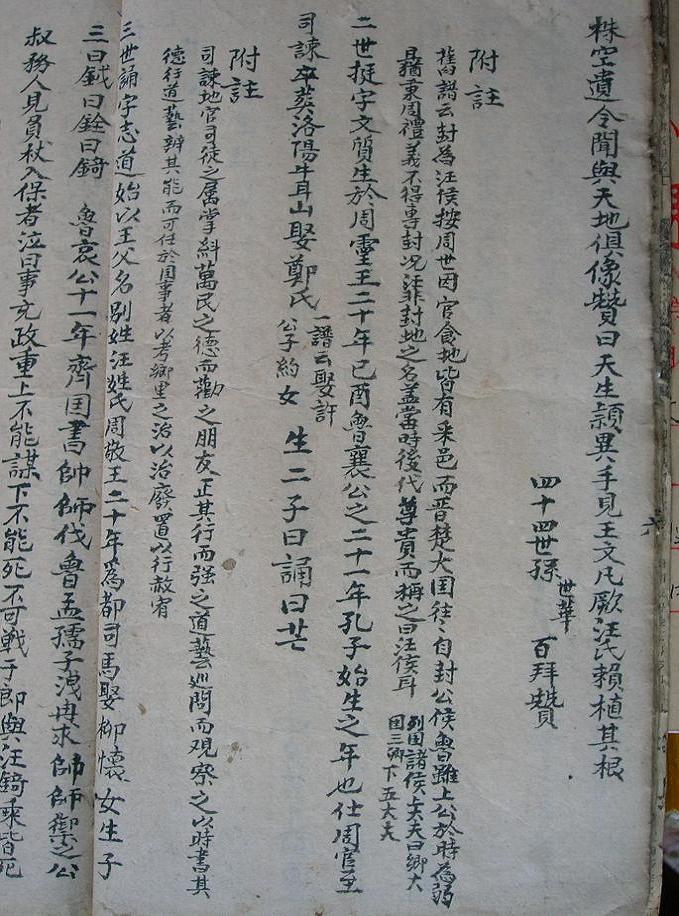 株空遺令聞與天地俱像贊曰天生穎異手見王文凡厥汪氏賴植其根
四十四世孫世華百拜贊
附註
舊譜云封為汪侯按周世因官食地皆有采邑而晋楚大国往〻自封公侯魯雖上公於時為弱
最猶秉周禮義不得專封况汪非封地之名盖當時後代尊貴而稱之曰汪侯耳 列国諸侯上大夫曰卿大
国三卿下五大夫
二世挺字文質生於周靈王二十年己酉魯襄公之二十一年孔子始生之年也仕周官至
司諫卒葬洛陽牛耳山娶鄭氏 一譜云娶許
公子約女 生二子曰誦曰芒
附註
司諫地官司徒之属掌糾萬民之德而勸之朋友正其行而强之道藝巡問而观察之以時書其
德行道藝辨其能而可任於国事者以考鄉里之治以治廢置以行赦宥
三世誦字志道始以王父名别姓汪姓氏周敬王二十年為都司馬娶柳懷女生子
三曰鉞曰銓曰錡 魯哀公十一年齊国書帥師伐魯孟孺子洩冉求帥師禦之公
叔務人見負杖入保者泣曰事充政重上不能謀下不能死不可戦于郎與汪錡乘皆死